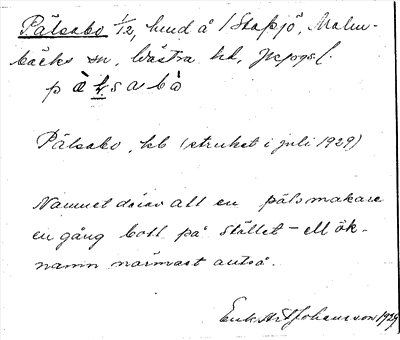 Pälsabo 1/12, hund å 1 Skafsjö, Malm-
bäcks sn, Västra hd, Jkpgs l.
Pälsabo, kb (struket i juli 1929)
Namnet därav att en pälsmakare
en gång bott på stället - ett ök-
namn närmast alltså.
Johansson 1929